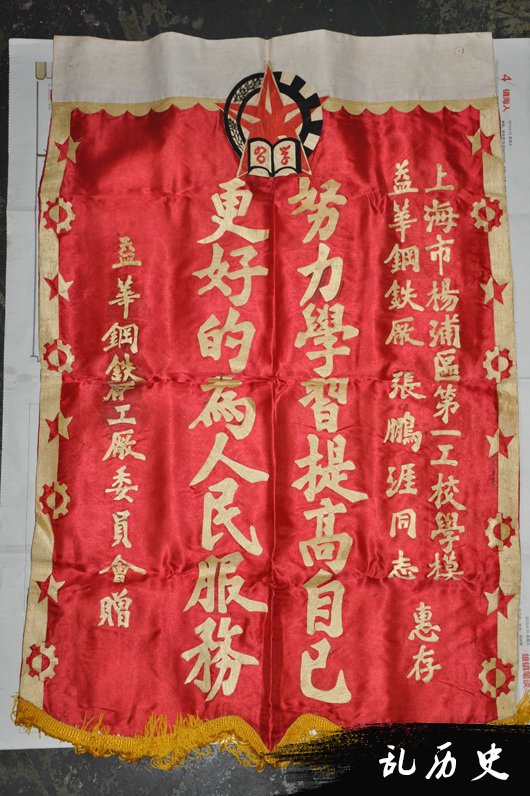 習學
上海市楊浦區第一工校學模
益華鋼鉄厰 張鵬涯同志
惠存
努力學習提高自己
更好的為人民服務
益華鋼鉄厰工厰委員會贈
乱历史